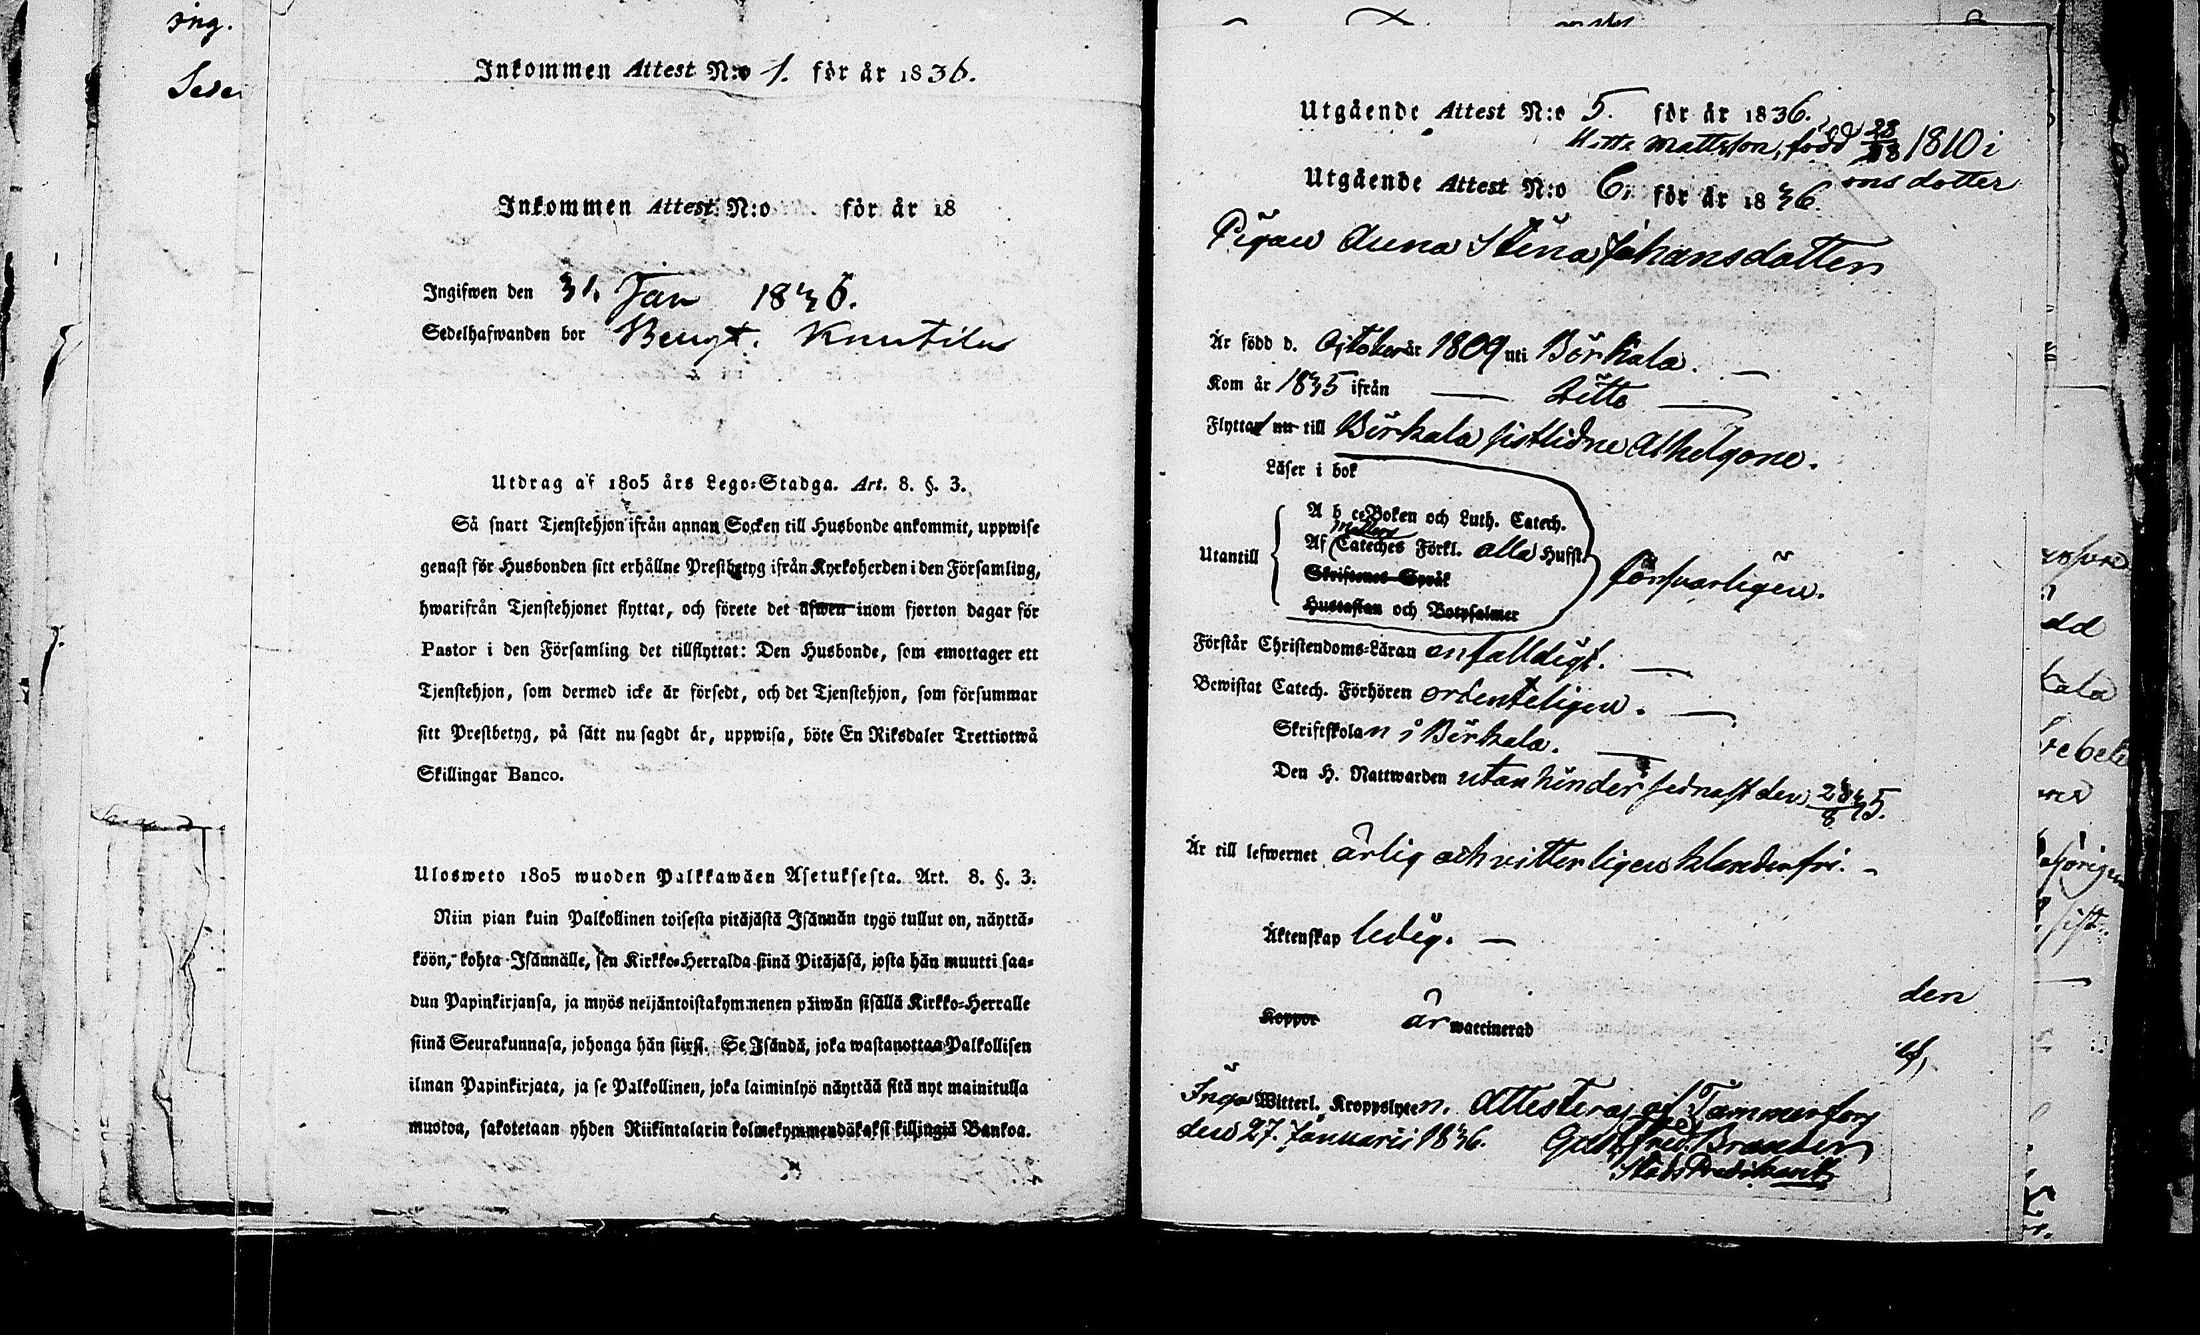 ing.
Inkommen Attest N:o 1. för år 1836.
Sede
Inkommen Attest N:o för år 18
Ingifwen den 31. Jan 1836.
Sedelhafwanden bor Bengt. Knutila
Utdrag af 1805 års Lego-Stadga. Art. 8. §. 3.
Så snart Tjenstehjon ifrån annan Socken till Husbonde ankommit, uppwise
genast för Husbonden sitt erhållne Prestbetyg ifrån Kyrkoherden i den Församling,
hwarifrån Tjenstehjonet flyttat, och förete det äfwen inom fjorton dagar för
Pastor i den Församling det tillflyttat: Den Husbonde, som emottager ett
Tjenstehjon, som dermed icke är försedt, och det Tjenstehjon, som försummar
sitt Prestbetyg, på sätt nu sagdt är, uppwisa, böte En Riksdaler Trettiotwå
Skillingar Banco.
Ulosweto 1805 wuoden Palkkawäen Asetuksesta. Art. 8. §. 3.
Niin pian kuin Palkollinen toisesta pitäjästä Isännän tygö tullut on, näyttä-
köön, kohta Isännälle, sen Kirkko-Herralda siinä Pitäjäsä, josta hän muutti saa-
dun Papinkirjansa, ja myös neljäntoistakymmenen päiwän sisällä Kirkko-Herralle
siinä Seurakunnasa, johonga hän siirsi. Se Isändä, joka wastanottaa Palkollisen
ilman Papinkirjata, ja se Palkollinen, joka laiminlyö näyttää sitä nyt mainitulla
muotoa, sakotetaan yhden Riikintalarin kolmekymmendäkaksi killingiä Bankoa.
Utgående Attest N:o 5. för år 1836.
Mattsson, född 28/18 1810 i
Utgående Attest N:o 6. för år 1836.
ons dotter
Pigan Anna Stina Johansdotter
Är född d. October år 1809 uti Birkala.
Kom år 1835 ifrån — ditto —
Flyttar nu till Birkala sistlidne Alhelgone.
Läser i bok
A b c-Boken och Luth. Catech.
Utantill Af Cateches Förkl. alla Hufst.
Skriftenes Språk
försvarligen.
Hustaflan och Botpsalmer
Förstår Christendoms-Läran enfalldigt. —
Bewistat Catech. Förhören ordenteligen. —
Skriftskolan i Birkala. —
Den H. Nattwarden utan hinder sednast den 28/8 35.
Är till lefwernet ärlig och vitterligen klanderfri. —
Äktenskap ledig. —
den
Koppor är waccinerad
Inga Witterl. Kroppslyten. Attesteras af Tammerfors
den 27. Januarii 1836. Gust. Fred. Brander
Stads Predikant